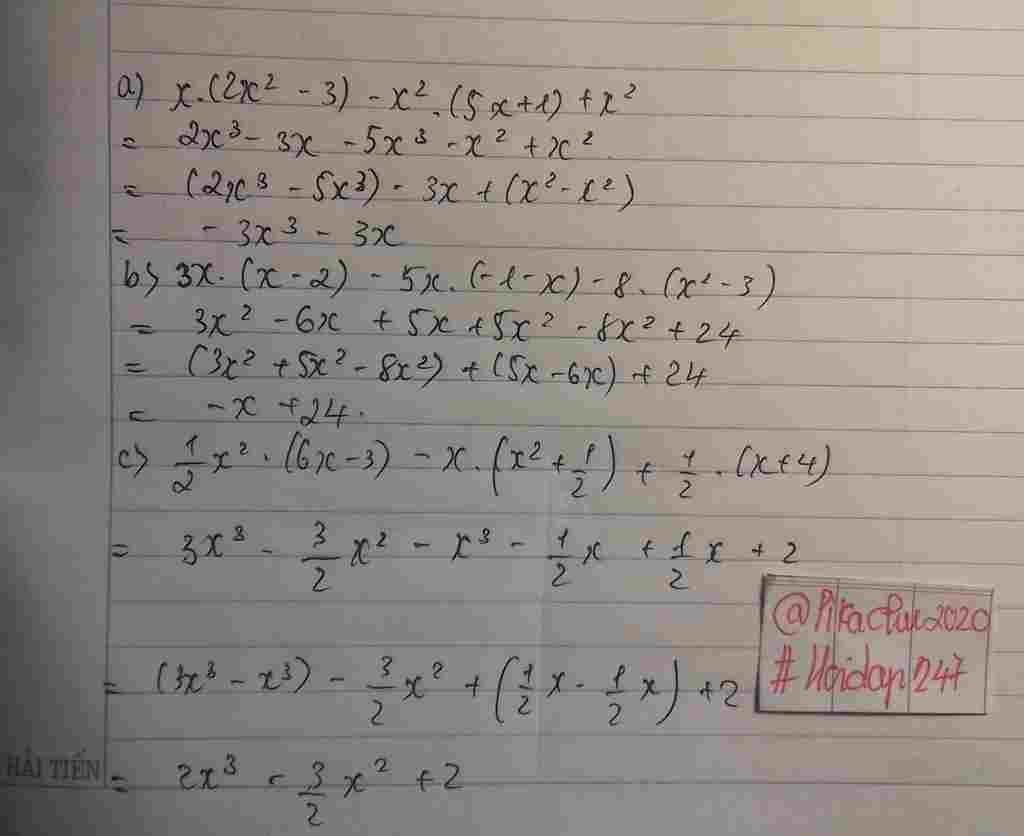 a) x.(2x² - 3) - x².(5x+1) + x²
= 2x³ - 3x - 5x³ - x² + x²
= (2x³ - 5x³) - 3x + (x² - x²)
= - 3x³ - 3x
b) 3x.(x - 2) - 5x.(-1 - x) - 8.(x² - 3)
= 3x² - 6x + 5x + 5x² - 8x² + 24
= (3x² + 5x² - 8x²) + (5x - 6x) + 24
= - x + 24.
c) 1/2 x².(6x - 3) - x.(x² + 1/2) + 1/2.(x+4)
= 3x³ - 3/2 x² - x³ - 1/2 x + 1/2 x + 2
@Pikachu2020
= (3x³ - x³) - 3/2 x² + (1/2 x - 1/2 x) + 2
#Hoidap247
HẢI TIẾN
= 2x³ - 3/2 x² + 2